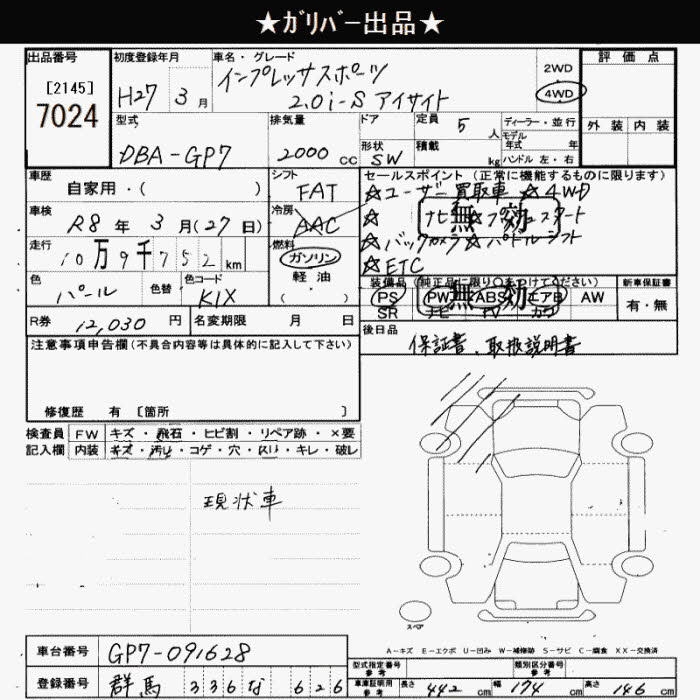 ★ｶﾞﾘﾊﾞｰ出品★
出品番号
[2145]
7024
初度登録年月
H27 3月
車名・グレード
インプレッサスポーツ
2.0i-S アイサイト
2WD
4WD
評価点
外装 内装
型式
DBA-GP7
排気量
2000 cc
ドア
形状
SW
定員 5 人
積載 kg
ディーラー・並行
モデル
年式 年
ハンドル 左・右
車歴
自家用・( )
シフト
FAT
セールスポイント (正常に機能するものに限ります)
☆ユーザー買取車 ☆4WD
☆ ナビ ☆プッシュスタート
☆バックカメラ ☆パドルシフト
☆ETC
無効
車検
R8年 3月(27日)
冷房
AAC
走行
10万9千752km
燃料
ガソリン
軽油
( )
色
パール
色替
色コード
K1X
装備品 (純正品に限り○をつけてください)
PS PW ABS エアB AW
SR ナビ TV カワ
無効
新車保証書
有・無
R券 12,030円
名変期限 月 日
後日品
保証書、取扱説明書
注意事項申告欄(不具合内容等は具体的に記入して下さい)
修復歴 有 [箇所 ]
検査員 FW キズ・飛石・ヒビ割・リペア跡・×要
記入欄 内装 キズ・汚れ・コゲ・穴・スリ・キレ・破レ
現状車
スペア
A-キズ E-エクボ U-凹み W-補修跡 S-サビ C-腐食 XX-交換済
車台番号 GP7-091628
登録番号 群馬 336 な 626
型式指定番号
参考
類別区分番号
参考
車庫証明用
参考
長さ 442 cm 幅 174 cm 高さ 146 cm